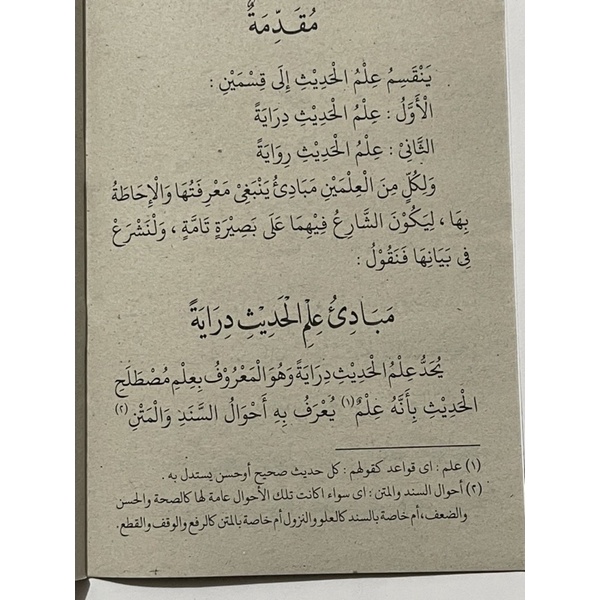 مُقَدِّمَةٌ
يَنْقَسِمُ عِلْمُ الْحَدِيْثِ إِلَى قِسْمَيْنِ :
الْأَوَّلُ : عِلْمُ الْحَدِيْثِ دِرَايَةً
الثَّانِيْ : عِلْمُ الْحَدِيْثِ رِوَايَةً
وَلِكُلٍّ مِنَ الْعِلْمَيْنِ مَبَادِئُ يَنْبَغِيْ مَعْرِفَتُهَا وَالْإِحَاطَةُ
بِهَا ، لِيَكُوْنَ الشَّارِعُ فِيْهِمَا عَلَى بَصِيْرَةٍ تَامَّةٍ ، وَلْنَشْرَعْ
فِى بَيَانِهَا فَنَقُوْلُ :
مَبَادِئُ عِلْمِ الْحَدِيْثِ دِرَايَةً
يُحَدُّ عِلْمُ الْحَدِيْثِ دِرَايَةً وَهُوَ الْمَعْرُوْفُ بِعِلْمِ مُصْطَلَحِ
الْحَدِيْثِ بِأَنَّهُ عِلْمٌ (١) يُعْرَفُ بِهِ أَحْوَالُ السَّنَدِ وَالْمَتْنِ (٢)
(١) علم : اى قواعد كقولهم : كل حديث صحيح أوحسن يستدل به .
(٢) أحوال السند والمتن : اى سواء اكانت تلك الأحوال عامة لها كالصحة والحسن
والضعف، أم خاصة بالسند كالعلو والنزول أم خاصة بالمتن كالرفع والوقف والقطع.